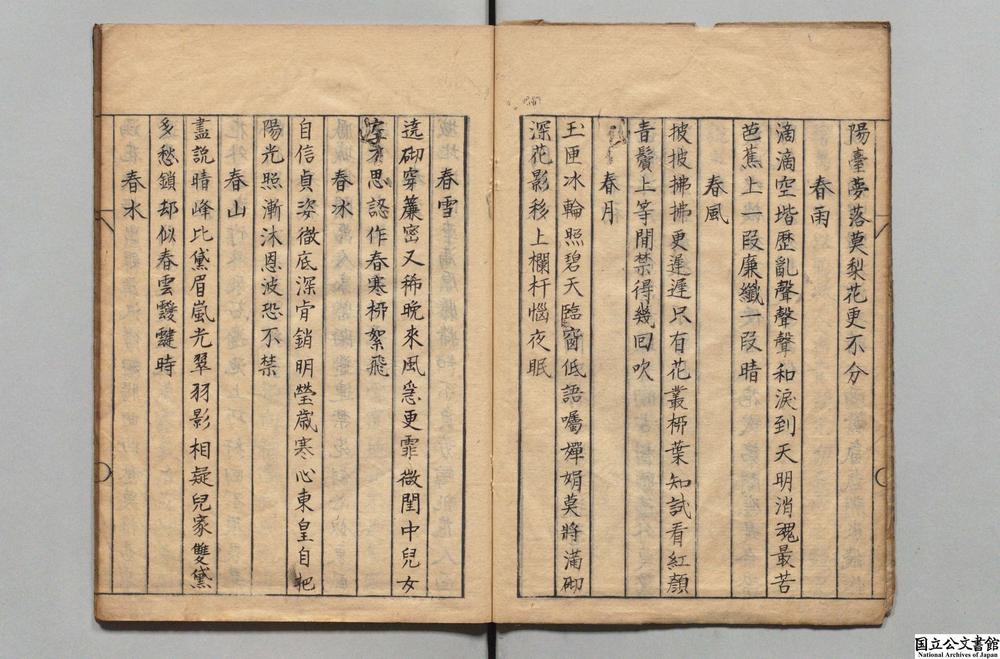 陽臺夢落莫梨花更不分
春雨
滴滴空堦歴亂聲聲聲和淚到天明消魂最苦
芭蕉上一段廉纖一段晴
春風
披披拂拂更遲遲只有花叢桺葉知試看紅顏
青鬢上等閒禁得幾回吹
春月
玉匣冰輪照碧天臨窗低語囑嬋娟莫將滿砌
深花影移上欄杆惱夜眠
春雪
遶砌穿簾密又稀晚來風急更霏微閨中兒女
才思認作春寒桺絮飛
春冰
自信貞姿徹底深肯銷明瑩歲寒心東皇自把
陽光照漸沐恩波恐不禁
春山
盡說晴峰比黛眉嵐光翠羽影相疑兒家雙黛
多愁鎖却似春雲靉靆時
春水
国立公文書館
National Archives of Japan